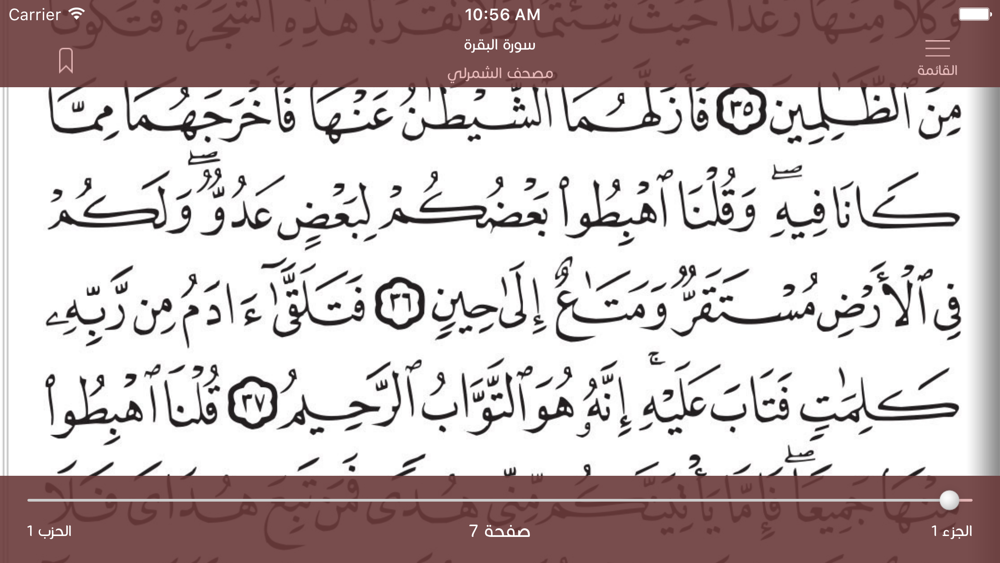 Carrier 10:56 AM
سورة البقرة
مصحف الشمرلي
القائمة
وَكُلَا مِنْهَا رَغَدًا حَيْثُ شِئْتُمَا وَلَا تَقْرَبَا هَٰذِهِ ٱلشَّجَرَةَ فَتَكُونَا
مِنَ ٱلظَّٰلِمِينَ ٣٥ فَأَزَلَّهُمَا ٱلشَّيْطَٰنُ عَنْهَا فَأَخْرَجَهُمَا مِمَّا
كَانَا فِيهِۖ وَقُلْنَا ٱهْبِطُوا۟ بَعْضُكُمْ لِبَعْضٍ عَدُوٌّۖ وَلَكُمْ
فِى ٱلْأَرْضِ مُسْتَقَرٌّ وَمَتَٰعٌ إِلَىٰ حِينٍ ٣٦ فَتَلَقَّىٰٓ ءَادَمُ مِن رَّبِّهِۦ
كَلِمَٰتٍ فَتَابَ عَلَيْهِۚ إِنَّهُۥ هُوَ ٱلتَّوَّابُ ٱلرَّحِيمُ ٣٧ قُلْنَا ٱهْبِطُوا۟
مِنْهَا جَمِيعًاۖ فَإِمَّا يَأْتِيَنَّكُم مِّنِّى هُدًى فَمَن تَبِعَ هُدَاىَ فَلَا
الجزء 1
صفحة 7
الحزب 1